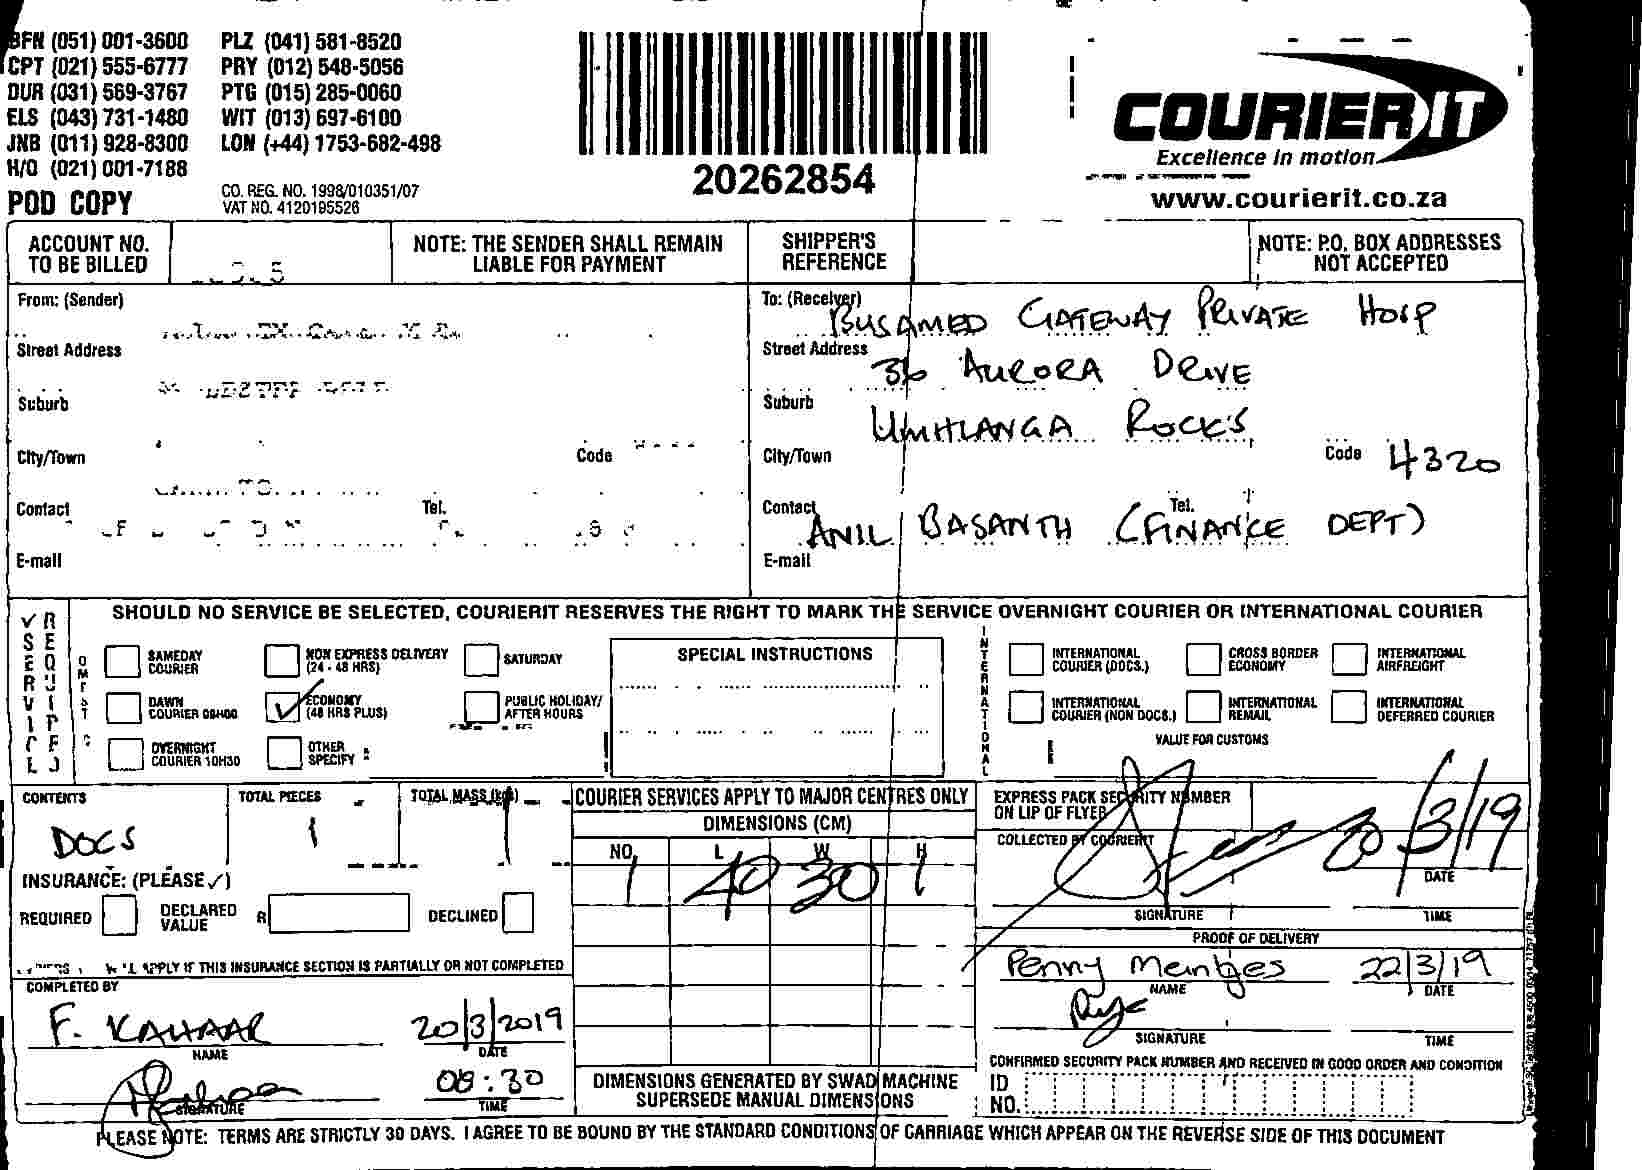 BFN (051) 001-3600 PLZ (041) 581-8520
CPT (021) 555-6777 PRY (012) 548-5056
DUR (031) 569-3767 PTG (015) 285-0060
ELS (043) 731-1480 WIT (013) 697-6100
JNB (011) 928-8300 LON (+44) 1753-682-498
H/O (021) 001-7188
POD COPY
CO. REG. NO. 1998/010351/07
VAT NO. 4120195526
20262854
COURIERIT
Excellence in motion
www.courierit.co.za
ACCOUNT NO. TO BE BILLED
NOTE: THE SENDER SHALL REMAIN LIABLE FOR PAYMENT
SHIPPER'S REFERENCE
NOTE: P.O. BOX ADDRESSES NOT ACCEPTED
From: (Sender)
Street Address
Suburb
City/Town Code
Contact Tel.
E-mail
To: (Receiver) BUSAMED GATEWAY PRIVATE HOSP
Street Address 36 AURORA DRIVE
Suburb UMHLANGA ROCKS
City/Town Code 4320
Contact Tel.
ANIL BASANTH (FINANCE DEPT)
E-mail
SHOULD NO SERVICE BE SELECTED, COURIERIT RESERVES THE RIGHT TO MARK THE SERVICE OVERNIGHT COURIER OR INTERNATIONAL COURIER
SAMEDAY COURIER
NON EXPRESS DELIVERY (24 - 48 HRS)
SATURDAY
DAWN COURIER 08H00
✓ ECONOMY (48 HRS PLUS)
PUBLIC HOLIDAY/ AFTER HOURS
OVERNIGHT COURIER 10H30
OTHER SPECIFY
SPECIAL INSTRUCTIONS
INTERNATIONAL
INTERNATIONAL COURIER (DOCS.)
CROSS BORDER ECONOMY
INTERNATIONAL AIRFREIGHT
INTERNATIONAL COURIER (NON DOCS.)
INTERNATIONAL REMAIL
INTERNATIONAL DEFERRED COURIER
VALUE FOR CUSTOMS
CONTENTS TOTAL PIECES TOTAL MASS (kg)
DOCS 1 1
INSURANCE: (PLEASE ✓)
REQUIRED DECLARED VALUE R DECLINED
APPLY IF THIS INSURANCE SECTION IS PARTIALLY OR NOT COMPLETED
COMPLETED BY
F. KAHAAR 20/3/2019
NAME DATE
08:30
SIGNATURE TIME
COURIER SERVICES APPLY TO MAJOR CENTRES ONLY
DIMENSIONS (CM)
NO. L W H
1 40 30 1
DIMENSIONS GENERATED BY SWAD MACHINE SUPERSEDE MANUAL DIMENSIONS
EXPRESS PACK SECURITY NUMBER ON LIP OF FLYER
COLLECTED BY COURIERIT
20/3/19
DATE
SIGNATURE TIME
PROOF OF DELIVERY
Penny Meintjes 22/3/19
NAME DATE
SIGNATURE TIME
CONFIRMED SECURITY PACK NUMBER AND RECEIVED IN GOOD ORDER AND CONDITION
ID NO.
PLEASE NOTE: TERMS ARE STRICTLY 30 DAYS. I AGREE TO BE BOUND BY THE STANDARD CONDITIONS OF CARRIAGE WHICH APPEAR ON THE REVERSE SIDE OF THIS DOCUMENT